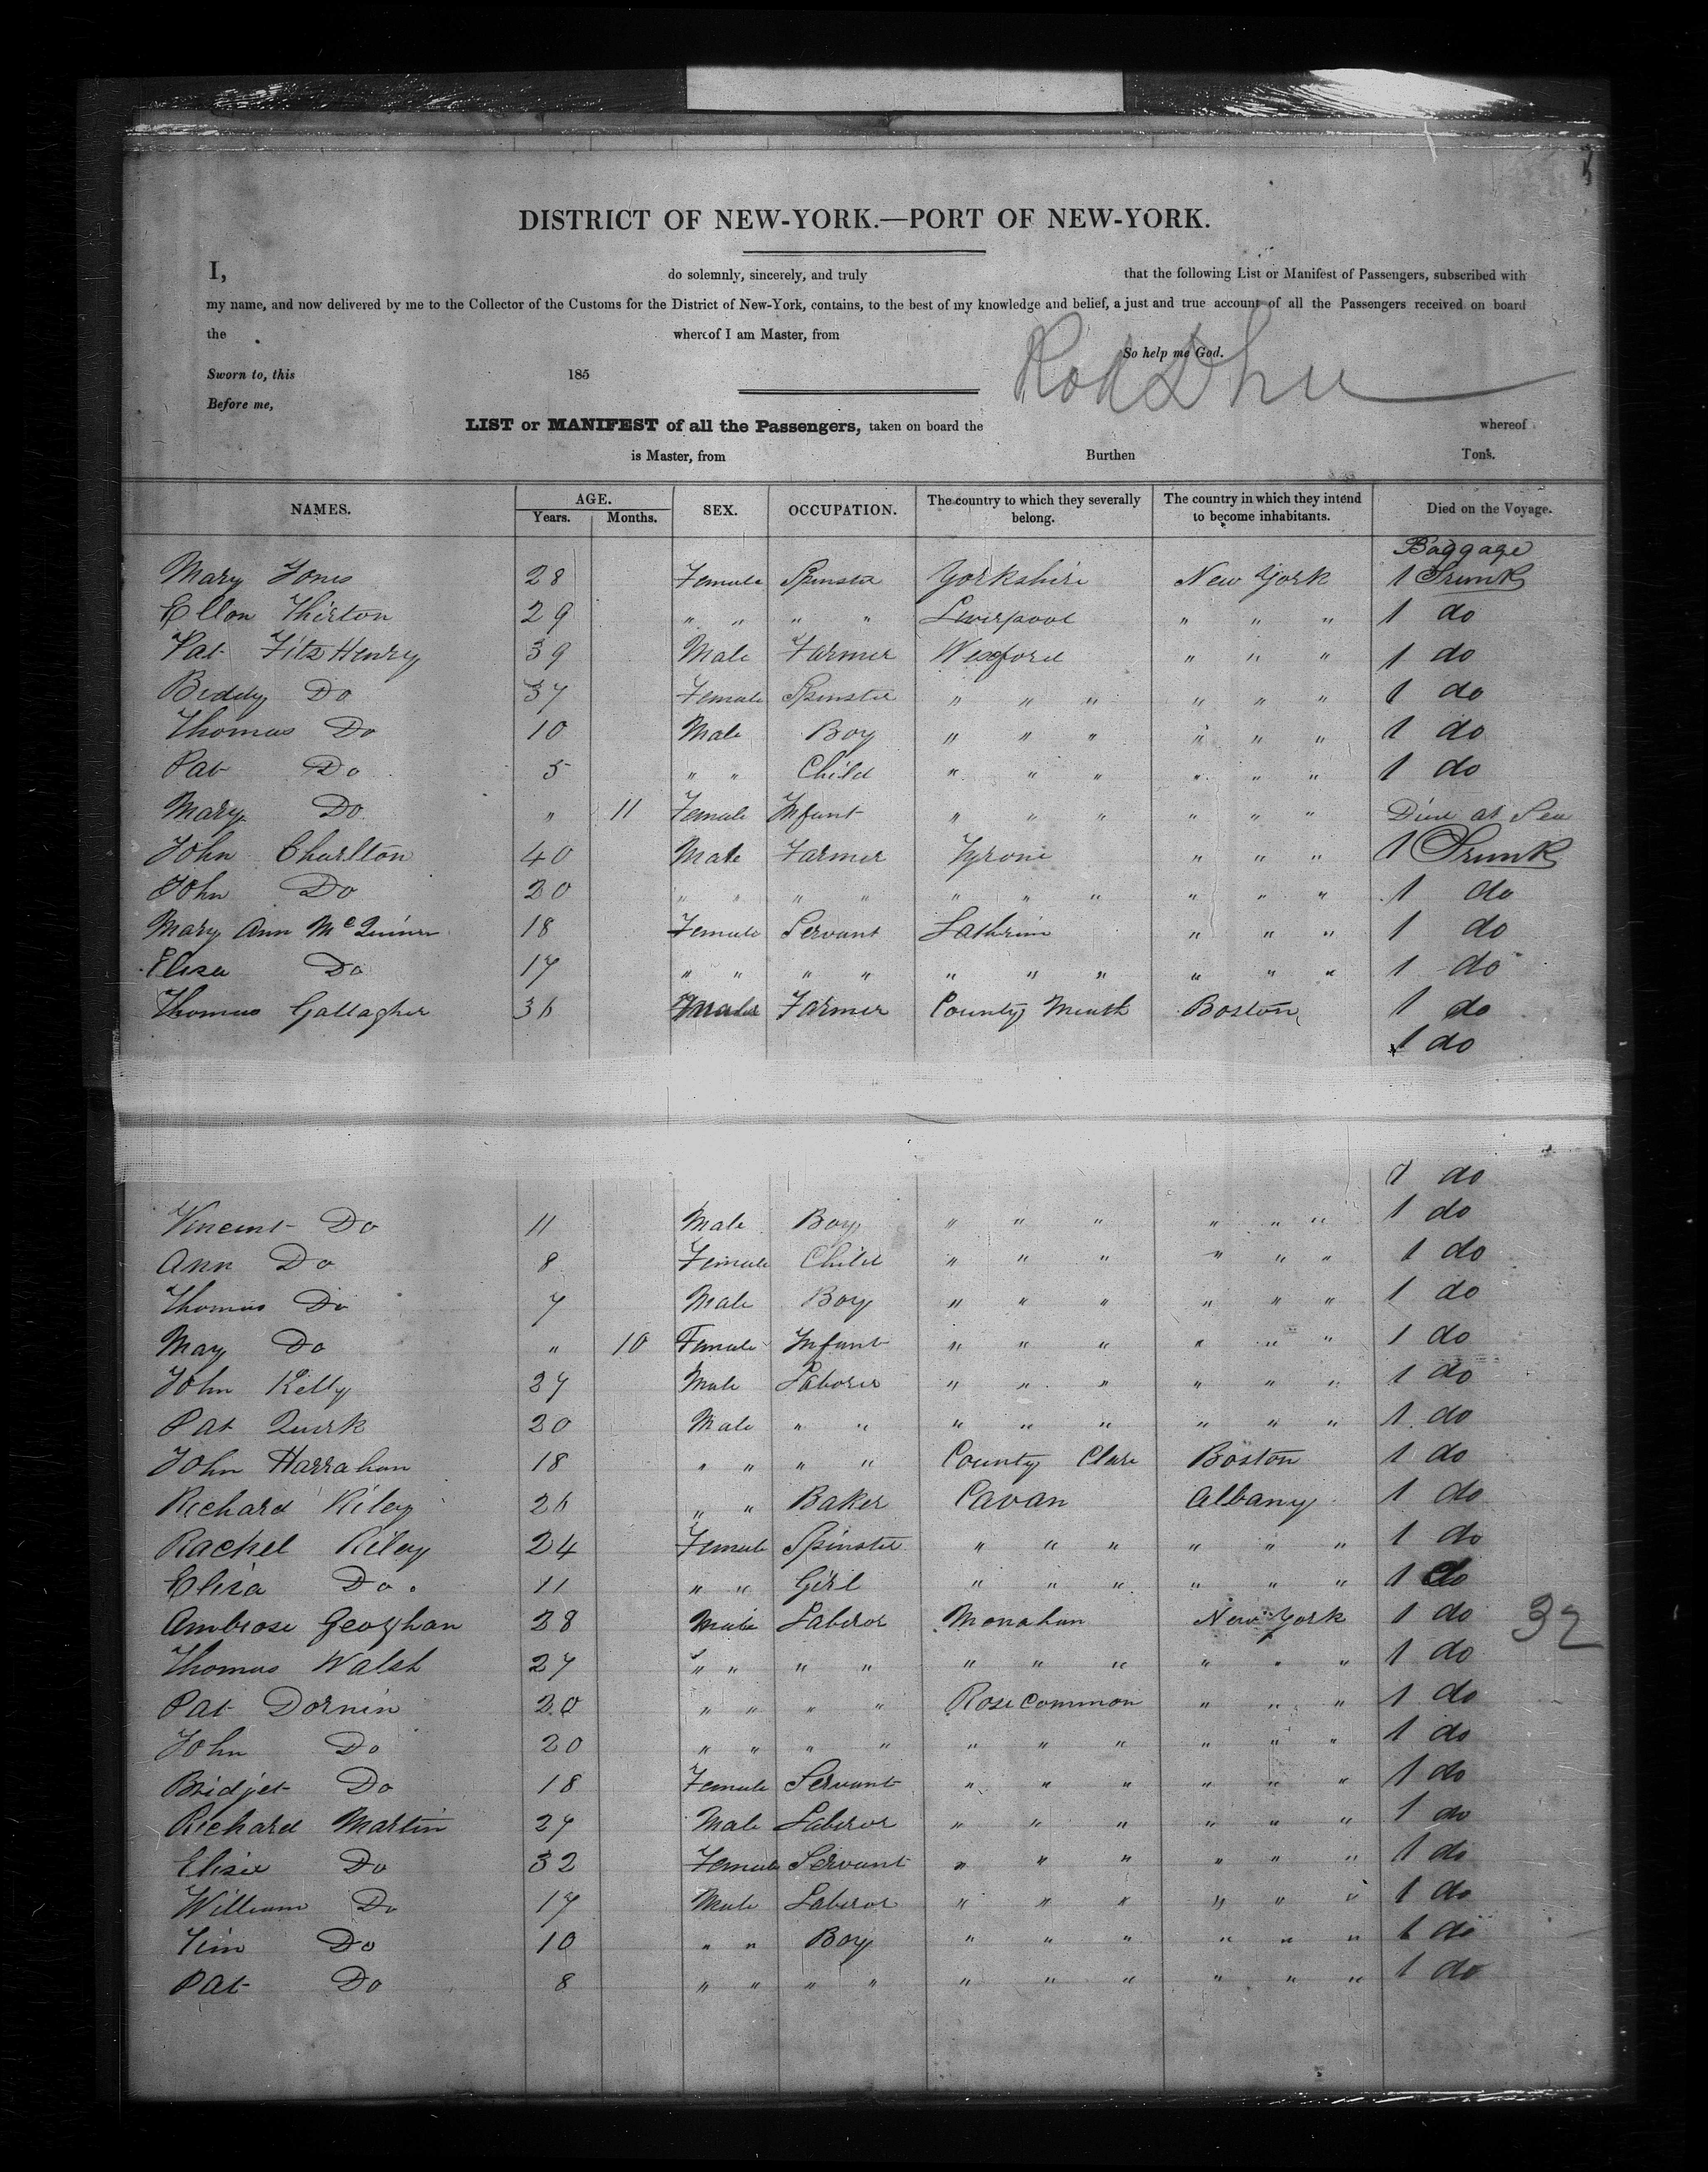 DISTRICT OF NEW-YORK.—PORT OF NEW-YORK.
I, do solemnly, sincerely, and truly that the following List or Manifest of Passengers, subscribed with
my name, and now delivered by me to the Collector of the Customs for the District of New-York, contains, to the best of my knowledge and belief, a just and true account of all the Passengers received on board
the whereof I am Master, from
So help me God.
Sworn to, this 185
Before me,
LIST or MANIFEST of all the Passengers, taken on board the whereof
is Master, from Burthen Tons.
NAMES. AGE. Years. Months. SEX. OCCUPATION. The country to which they severally belong. The country in which they intend to become inhabitants. Died on the Voyage.
Baggage
Mary Jones 28 Female Spinster Yorkshire New York 1 Trunk
Ellon Thirton 29 " " " " Liverpool " " " 1 do
Pat FitzHenry 39 Male Farmer Wexford " " " 1 do
Biddy Do 37 Female Spinster " " " " " " 1 do
Thomas Do 10 Male Boy " " " " " " 1 do
Pat Do 5 " " Child " " " " " " 1 do
Mary Do " 11 Female Infant " " " " " " Died at Sea
John Charlton 40 Male Farmer Tyrone " " " 1 Trunk
John Do 20 " " " " " " " " " " 1 do
Mary Ann McQuinn 18 Female Servant Lathrim " " " 1 do
Eliza Do 17 " " " " " " " " " " 1 do
Thomas Gallagher 36 Male Farmer County Meath Boston 1 do
1 do
1 do
Vincent Do 11 Male Boy " " " " " " 1 do
Ann Do 8 Female Child " " " " " " 1 do
Thomas Do 7 Male Boy " " " " " " 1 do
May Do " 10 Female Infant " " " " " " 1 do
John Kelly 27 Male Laborer " " " " " " 1 do
Pat Quirk 20 Male " " " " " " " " 1 do
John Harrahan 18 " " " " County Clare Boston 1 do
Richard Riley 26 " " Baker Cavan Albany 1 do
Rachel Riley 24 Female Spinster " " " " " " 1 do
Eliza Do 11 " " Girl " " " " " " 1 do
Ambrose Geoghan 28 Male Laberor Monahan New York 1 do 32
Thomas Walsh 27 " " " " " " " " " " 1 do
Pat Dornin 20 " " " " Rosecommon " " " 1 do
John Do 20 " " " " " " " " " " 1 do
Bridjet Do 18 Female Servant " " " " " " 1 do
Richard Martin 27 Male Laberor " " " " " " 1 do
Eliza Do 32 Female Servant " " " " " " 1 do
William Do 17 Male Laberor " " " " " " 1 do
Tim Do 10 " " Boy " " " " " " 1 do
Pat Do 8 " " " " " " " " " " 1 do